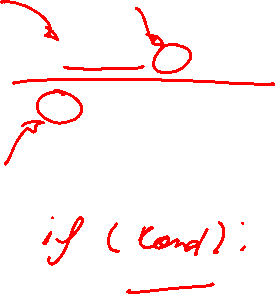 if (cond):